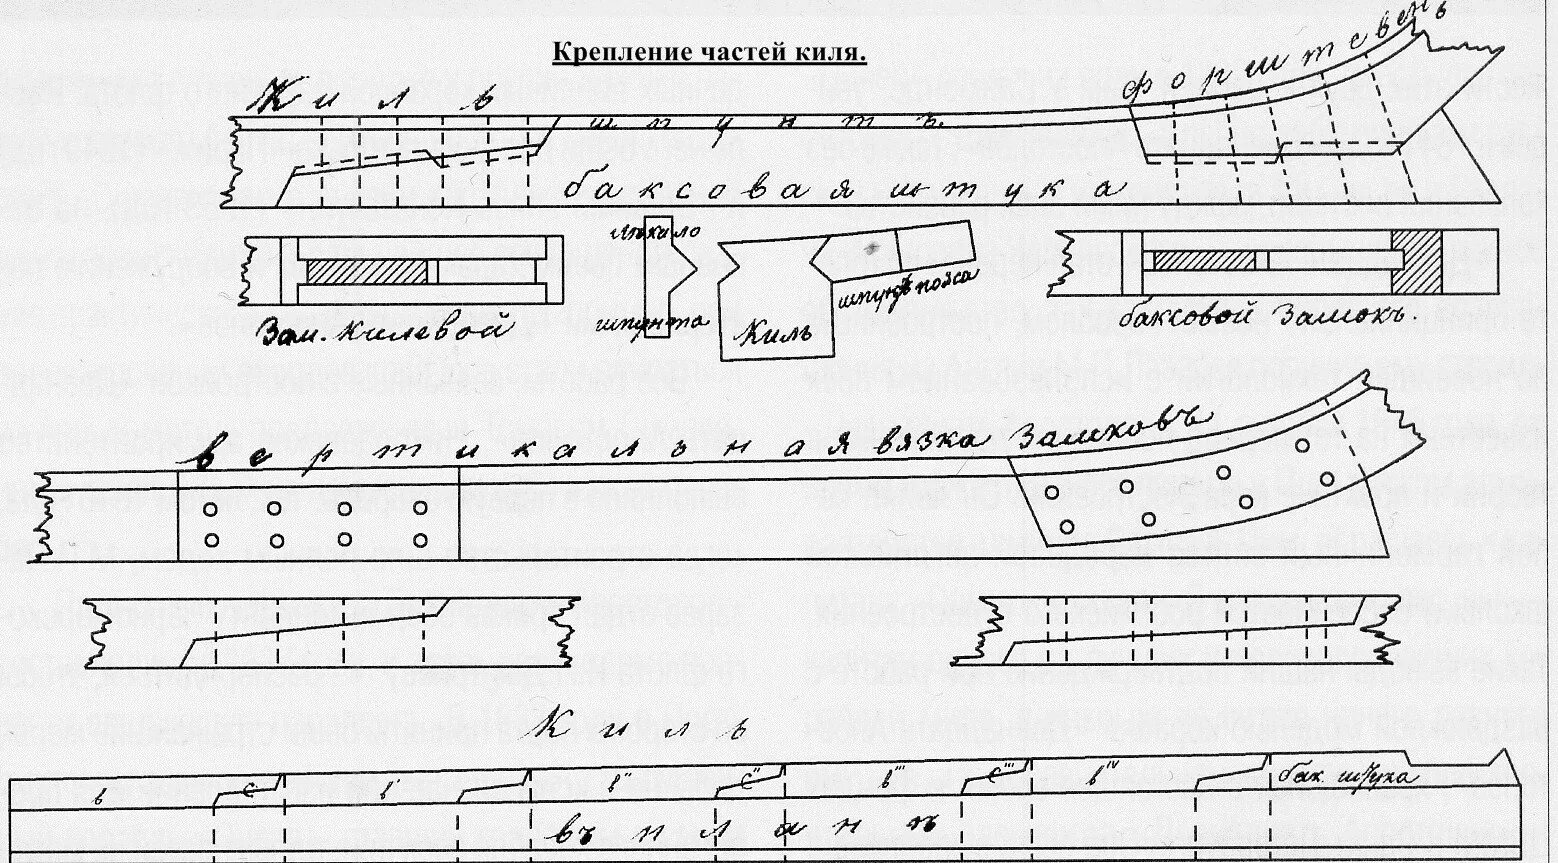 Крепление частей киля.
форштевень
Киль
шпунтъ.
баксовая штука
лѣкало
шпунта
шпунтъ пояса
Киль
Зам. килевой
баксовой Замокъ.
вертикальная вязка Замковъ
Киль
в с в' в'' с'' в''' с''' в'ⱽ бак. штука
въ планъ